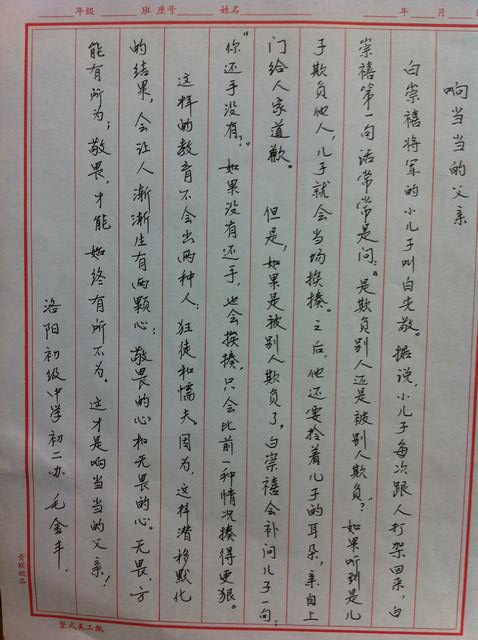 年级 班 座号 姓名 年 月
响当当的父亲
白崇禧将军的小儿子叫白先敬。据说，小儿子每次跟人打架回来，白
崇禧第一句话常常是问：“是欺负别人还是被别人欺负？”如果听到是儿
子欺负他人，儿子就会当场挨揍。之后，他还要拎着儿子的耳朵，亲自上
门给人家道歉。 但是，如果是被别人欺负了，白崇禧会补问儿子一句：
“你还手没有？”如果没有还手，也会挨揍，只会比前一种情况揍得更狠。
这样的教育不会出两种人：狂徒和懦夫。因为，这样潜移默化
的结果，会让人渐渐生有两颗心：敬畏的心和无畏的心。无畏，方
能有所为；敬畏，才能始终有所不为。这才是响当当的父亲！
洛阳初级中学初二办 毛金丰
青联纸品
竖式美工纸